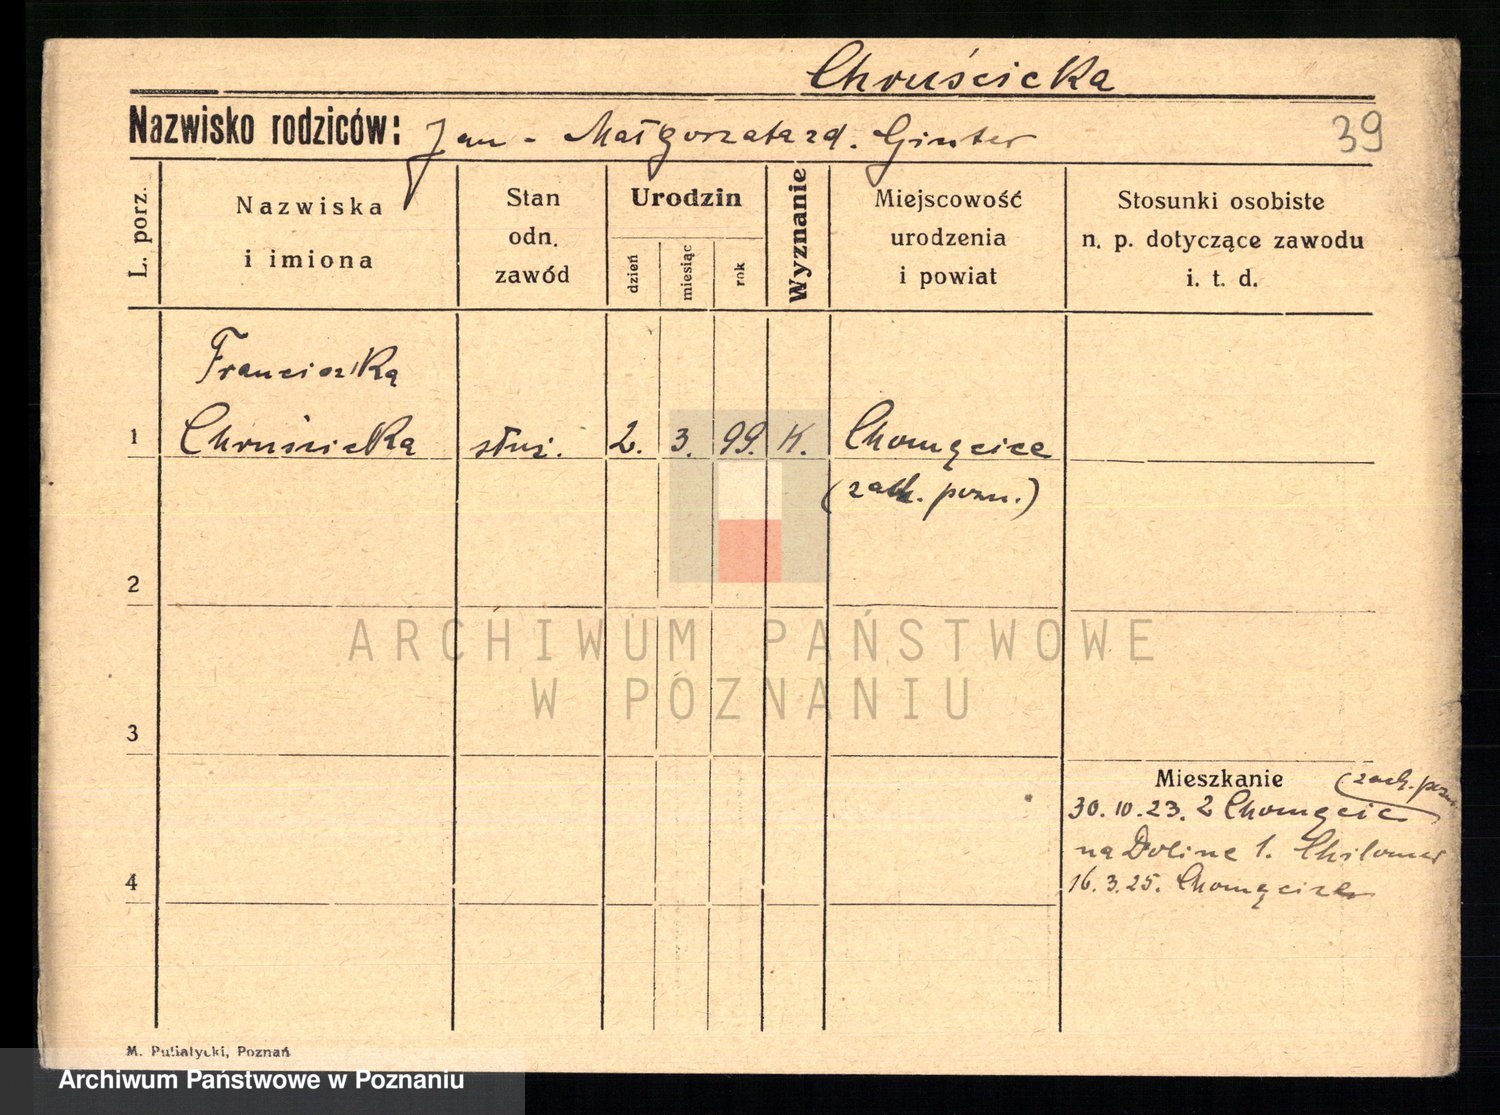 Chruścicka
Nazwisko rodziców: Jan - Małgorzata zd. Ginter
39
L. porz.
Nazwiska
i imiona
Stan
odn.
zawód
Urodzin
dzień
miesiąc
rok
Wyznanie
Miejscowość
urodzenia
i powiat
Stosunki osobiste
n. p. dotyczące zawodu
i. t. d.
Franciszka
1 Chruścicka służ. 2. 3. 99. K. Chomęcice
(zach. pozn.)
2
ARCHIWUM PAŃSTWOWE
W POZNANIU
3
Mieszkanie (zach. pozn.
30.10.23. z Chomęcic
na Doline 1.
4
16.3.25. Chomęcice
M. Putiatycki, Poznań
Archiwum Państwowe w Poznaniu